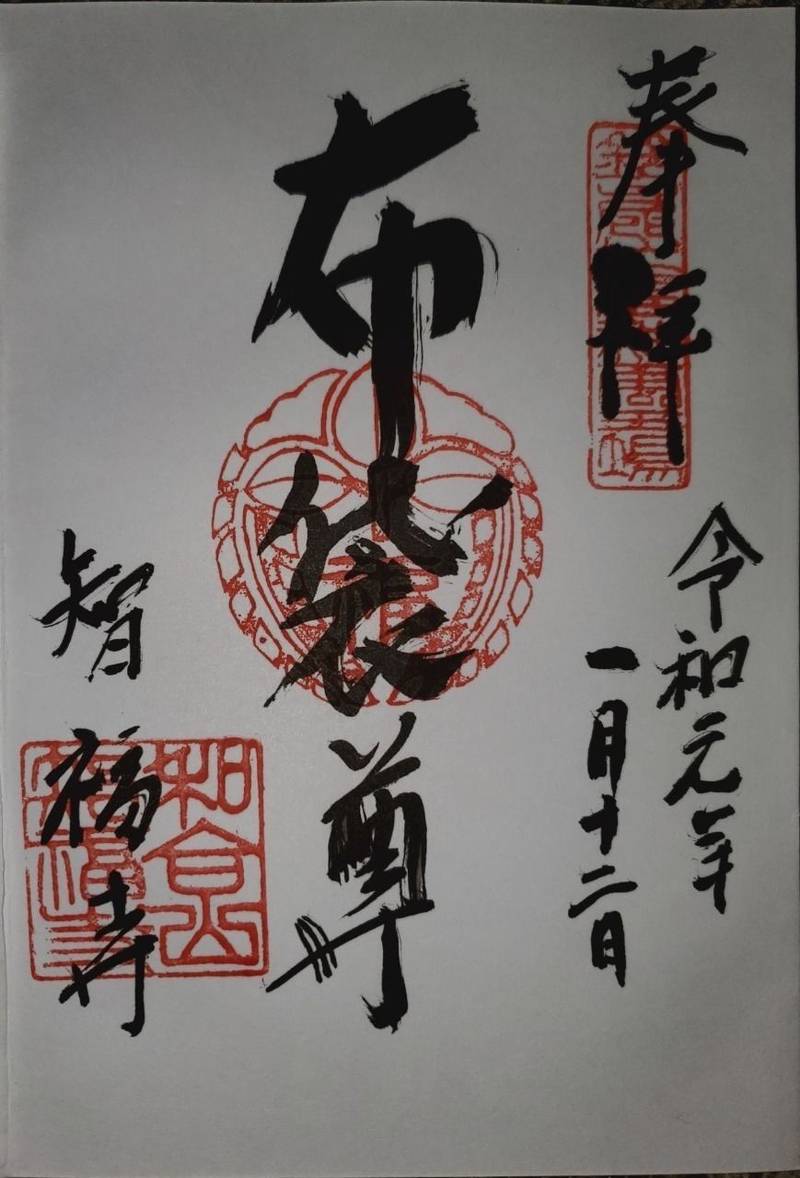 奉拝
令和元年
一月十二日
布袋尊
智福寺